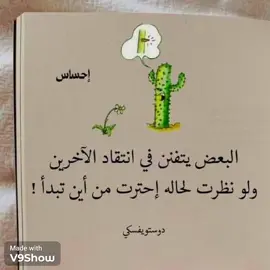 إحساس
البعض يتفنن في انتقاد الآخرين
ولو نظرت لحاله إحترت من أين تبدأ !
دوستويفسكي
Made with
V9Show